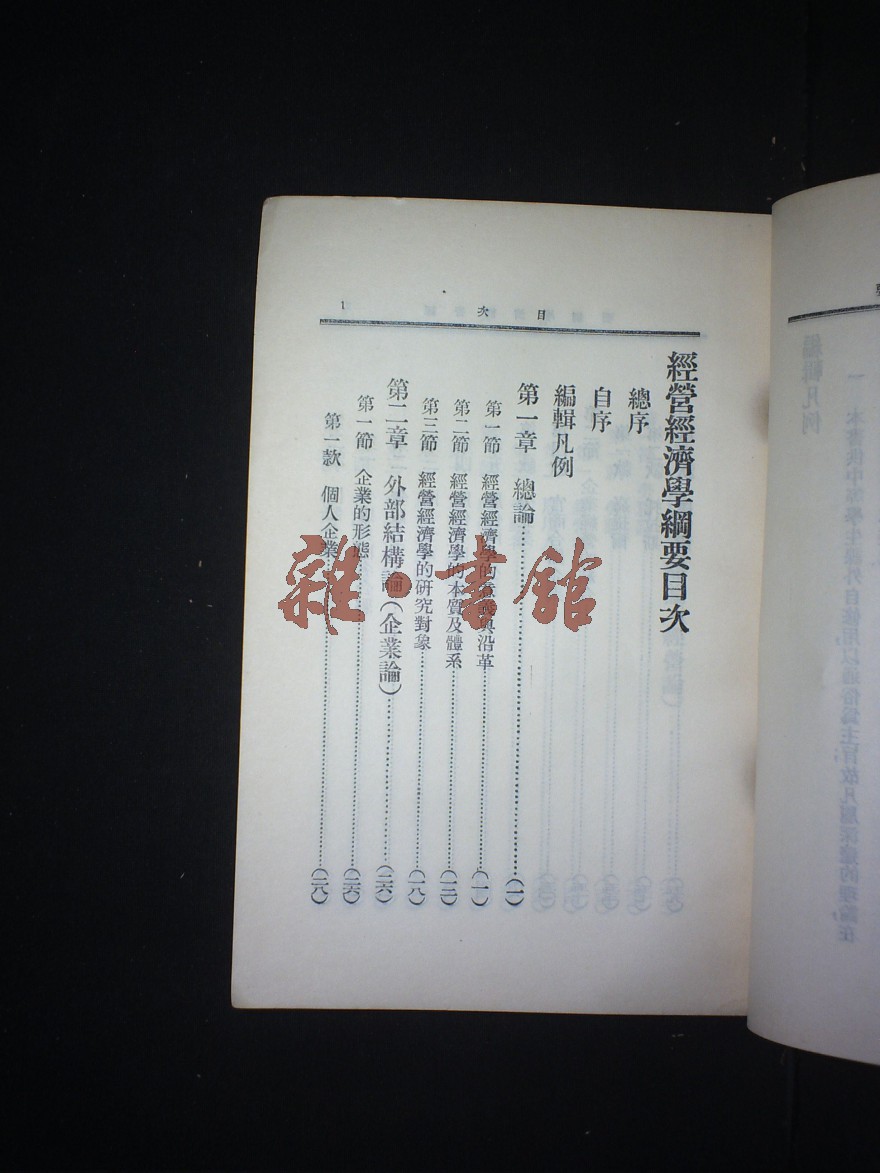 目次
1
經營經濟學綱要目次
總序
自序
編輯凡例
第一章 總論……(一)
第一節 經營經濟學的意義與沿革……(一)
第二節 經營經濟學的本質及體系……(一三)
第三節 經營經濟學的研究對象……(一八)
第二章 外部結構論(企業論)……(二六)
第一節 企業的形態……(二六)
第一款 個人企業……(二八)
雜·書館